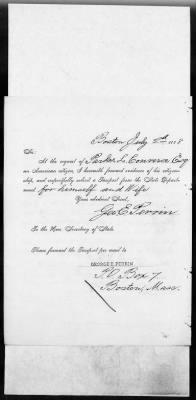 Boston July 2th 1118
Sir:
At the request of Parker L. Converse Esq
an American citizen, I herewith forward evidence of his citizen-
ship, and respectfully solicit a Passport from the State Depart-
ment for himself and Wife
Your obedient Serv't,
Geo E Perrin
To the Hon. Secretary of State.
Please forward the Passport per mail to
GEORGE E. PERRIN
P.O Box 7
Boston, Mass.